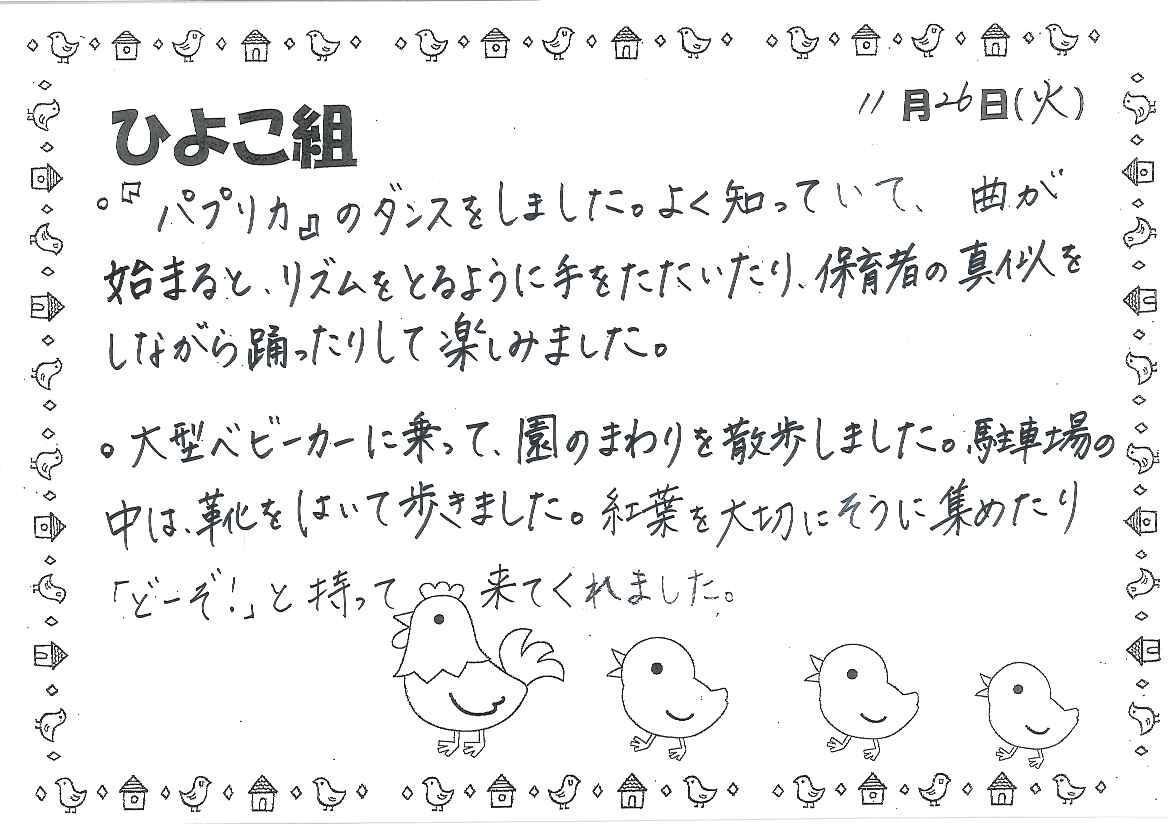 11月26日(火)
ひよこ組
。『パプリカ』のダンスをしました。よく知っていて、曲が
始まると、リズムをとるように手をたたいたり、保育者の真似を
しながら踊ったりして楽しみました。
。大型ベビーカーに乗って、園のまわりを散歩しました。駐車場の
中は、靴をはいて歩きました。紅葉を大切にそうに集めたり
「どーぞ!」と持って来てくれました。